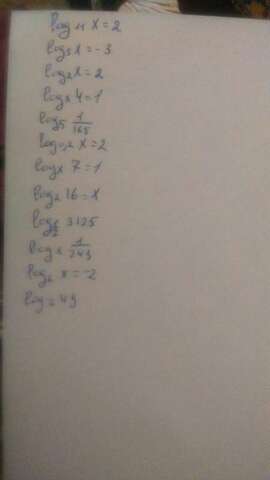 log₄ x = 2
log₅ x = -3
log₂ x = 2
logₓ 4 = 1
log₅ 1/165
log₀,₂ x = 2
logₓ 7 = 1
log₂ 16 = x
3125
log 1/243
log₆ x = -2
log 49